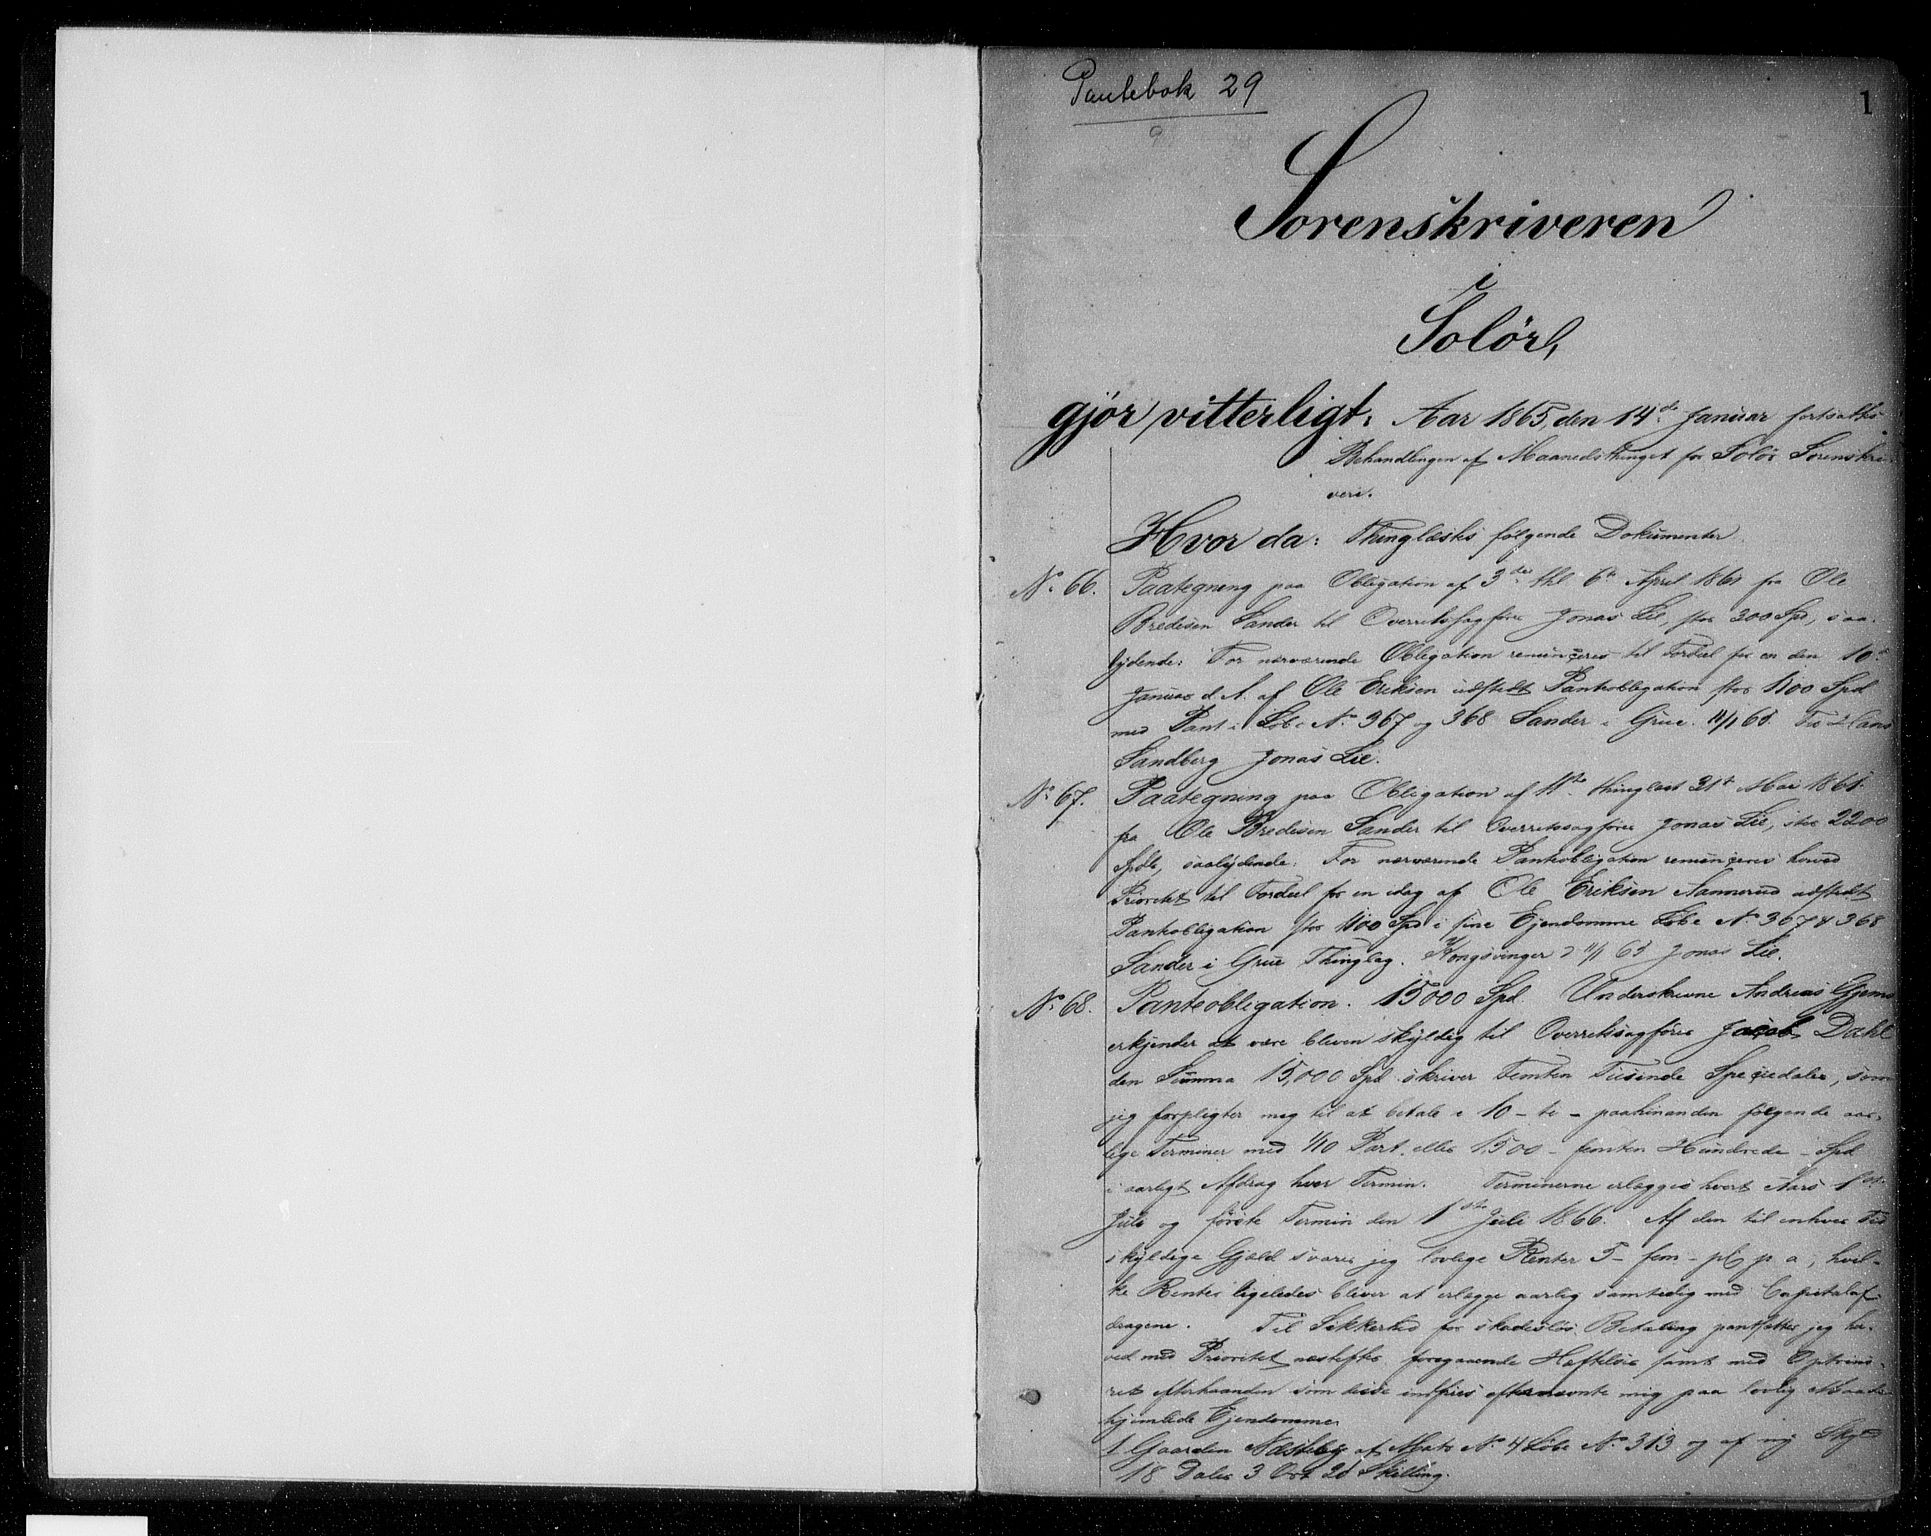 Pantebok 29
1
Sorenskriveren
i
Solör,
gjör vitterligt: Aar 1865, den 14de Januar fortsattes
Behandlingen af Maanedsthinget for Solör Sorenskri-
veri.
Hvor da: Thinglæstes følgende Dokumenter
No 66. Paategning paa Obligation af 3die thl 6te April 1861 fra Ole
Bredesen Sander til Overretssagfører Jonas Lie, stor 300 Spd, saa-
lydende: For nærværende Obligation renunceres til Fordeel for en den 10de
Januar d. A. af Ole Eriksen udstedt Pantobligation stor 1100 Spd
med Pant i Løbe No 367 og 368 Sander i Grue. 11/1 65. Hans
Sandberg Jonas Lie.
No 67. Paategning paa Obligation af 11te thinglæst 31te Mai 1861
fra Ole Bredesen Sander til Overretssagfører Jonas Lie, stor 2200
Spdlr, saalydende: For nærværende Pantobligation renunceres herved
Prioritet til Fordeel for en idag af Ole Eriksen Sannerud udstedt
Pantobligation stor 1100 Spd i sine Ejendomme Løbe No 367 & 368
Sander i Grue Thinglag. Kongsvinger d 11/1 65 Jonas Lie.
No 68. Panteobligation. 15000 Spd. Underskrevne Andreas Gjems
erkjender at være bleven skyldig til Overretssagfører Jacob Dahl
den Summa 15,000 Spd skriver Femten Tusinde Speciedaler, som
jeg forpligter mig til at betale i 10 - ti - paahinanden følgende aar-
lige Terminer med 1/10 Part, eller 1500 - femten Hundrede - Spd
i aarligt Afdrag hver Termin. Terminerne erlægges hvert Aars 1ste
Juli og første Termin den 1ste Juli 1866. Af den til enhver Tid
skyldige Gjæld svarer jeg lovlige Renter 5 - fem - pCt p a, hvil-
ke Renter ligeledes bliver at erlægge aarlig samtidig med Capitalaf-
dragene. Til Sikkerhed for skadesløs Betaling pantsætter jeg her-
ved med Prioritet næstefter foregaaende Heftelser samt med Optrins-
ret efterhaanden som disse indfries efternævnte mig paa lovlig Maade
hjemlede Ejendomme
1 Gaarden Næsteby af Matr No 4 Løbe No 313 og af ny Skyld
18 Daler 3 Ort 21 Skilling.